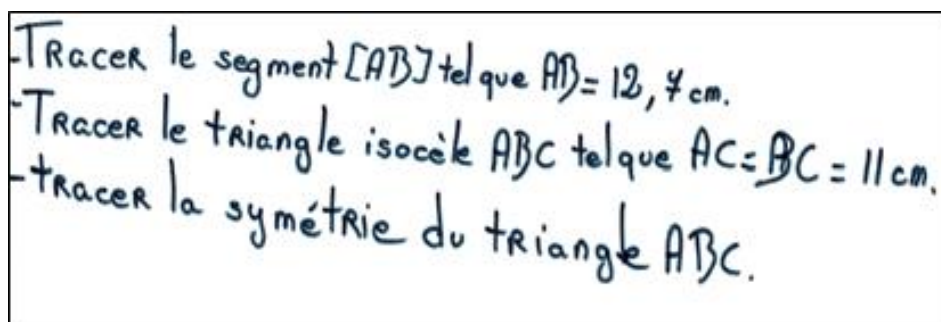 -Tracer le segment [AB] tel que AB = 12,7 cm.
-Tracer le triangle isocèle ABC tel que AC = BC = 11 cm.
-tracer la symétrie du triangle ABC.